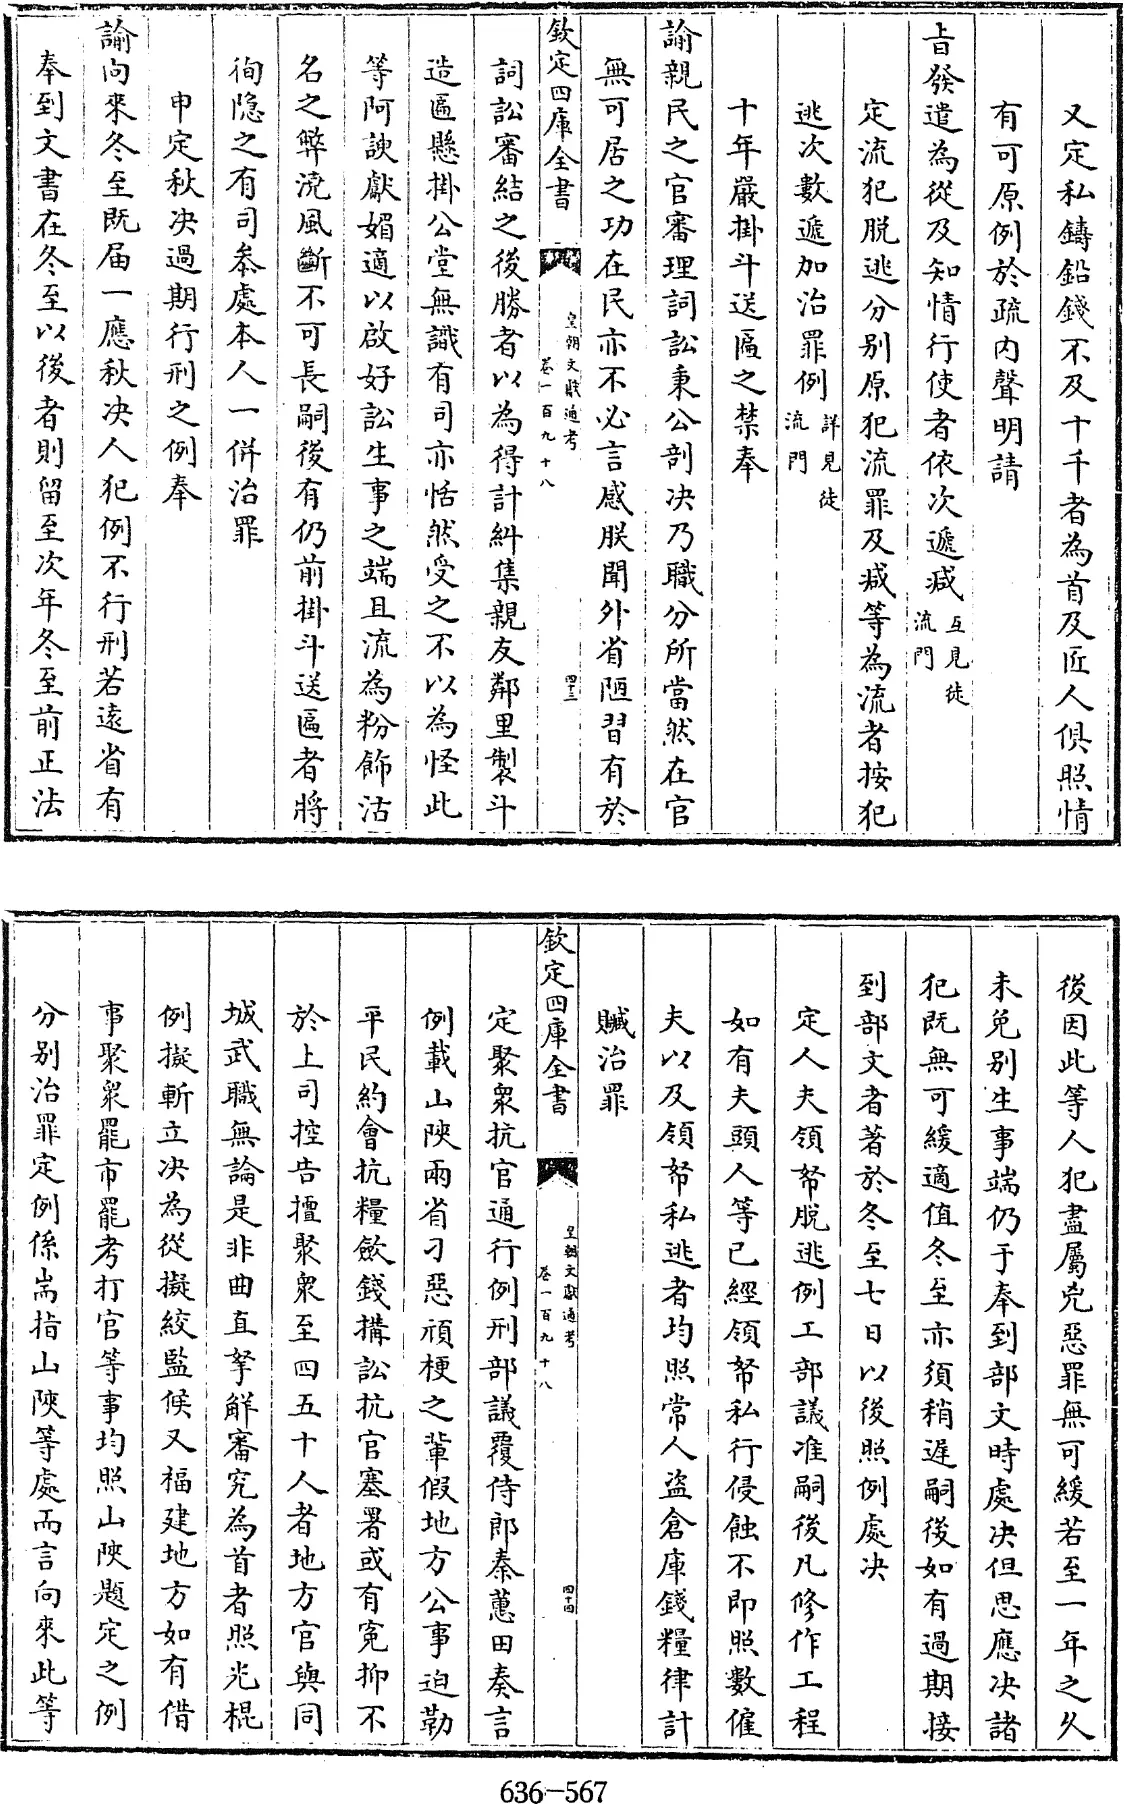 又定私鑄鉛錢不及十千者為首及匠人俱照情
有可原例於疏内聲明請
旨發遣為從及知情行使者依次遞减互見徒流門
定流犯脱逃分别原犯流罪及减等為流者按犯
逃次數遞加治罪例詳見徒流門
十年嚴掛斗送匾之禁奉
諭親民之官審理詞訟秉公剖决乃職分所當然在官
無可居之功在民亦不必言感朕聞外省陋習有於
欽定四庫全書
皇朝文獻通考
卷一百九十八
四十三
詞訟審結之後勝者以為得計糾集親友鄰里製斗
造匾懸掛公堂無識有司亦恬然受之不以為怪此
等阿諛獻媚適以啟好訟生事之端且流為粉飾沽
名之弊澆風斷不可長嗣後有仍前掛斗送匾者將
徇隐之有司叅處本人一併治罪
申定秋决過期行刑之例奉
諭向來冬至既届一應秋决人犯例不行刑若遠省有
奉到文書在冬至以後者則留至次年冬至前正法
後因此等人犯盡屬兇惡罪無可緩若至一年之久
未免别生事端仍于奉到部文時處决但思應决諸
犯既無可緩適值冬至亦須稍遲嗣後如有過期接
到部文者著於冬至七日以後照例處决
定人夫領帑脱逃例工部議准嗣後凡修作工程
如有夫頭人等已經領帑私行侵蝕不即照數僱
夫以及領帑私逃者均照常人盗倉庫錢糧律計
贓治罪
欽定四庫全書
皇朝文獻通考
卷一百九十八
四十四
定聚衆抗官通行例刑部議覆侍郎秦蕙田奏言
例載山陝兩省刁惡頑梗之輩假地方公事迫勒
平民約會抗糧歛錢搆訟抗官塞署或有寃抑不
於上司控告擅聚衆至四五十人者地方官與同
城武職無論是非曲直拏解審究為首者照光棍
例擬斬立决為從擬絞監候又福建地方如有借
事聚衆罷市罷考打官等事均照山陝題定之例
分别治罪定例係耑指山陝等處而言向來此等
636-567